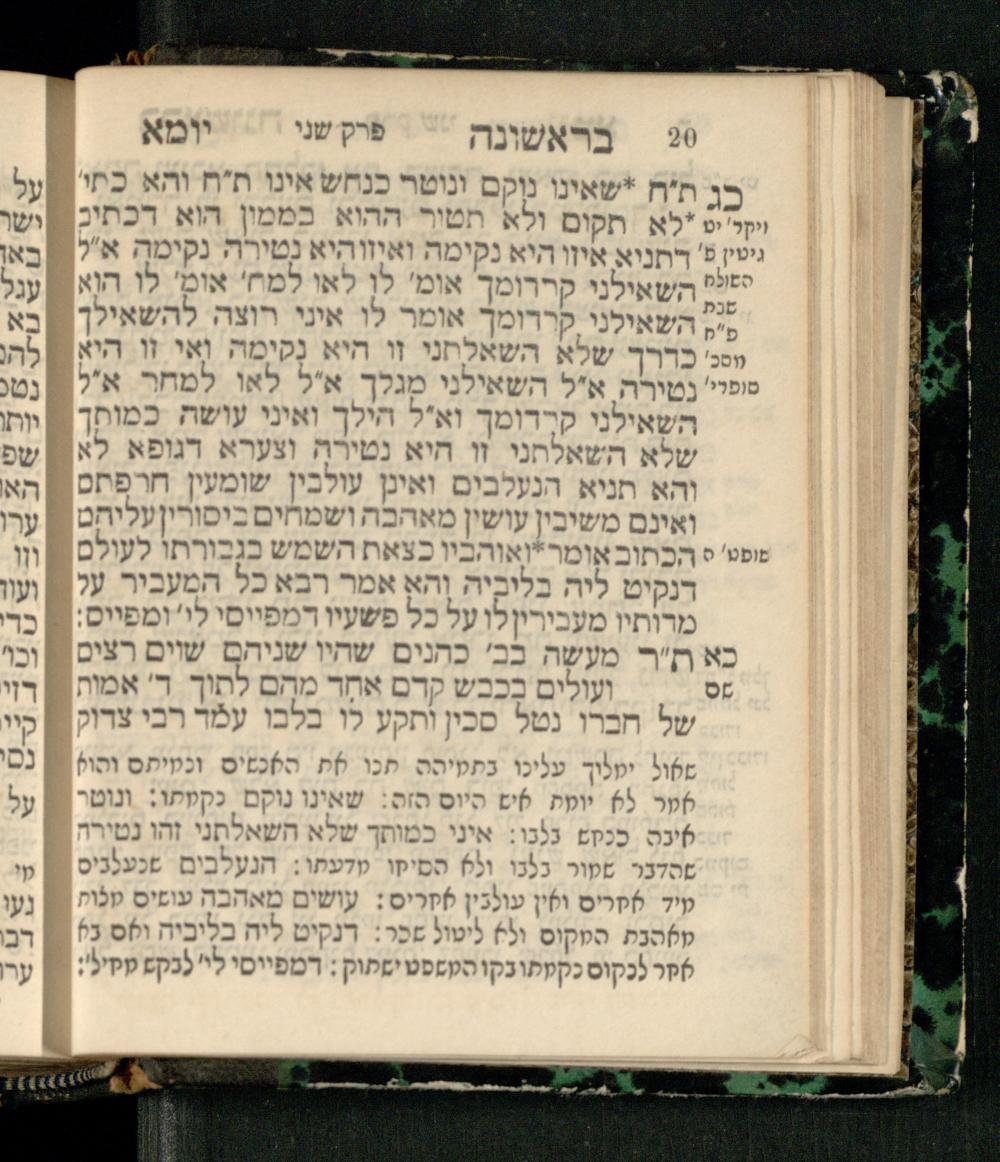 20 בראשונה פרק שני יומא
כג ת״ח *שאינו נוקם ונוטר כנחש אינו ת״ח והא כתי׳
ויקר׳ יט *לא תקום ולא תטור ההוא בממון הוא דכתיב
גיטין פ׳ דתניא איזו היא נקימה ואיזו היא נטירה נקימה א״ל
השולח השאילני קרדומך אומ׳ לו לאו למח׳ אומ׳ לו הוא
שבת השאילני קרדומך אומר לו איני רוצה להשאילך
פ״ח
מסכ׳ כדרך שלא השאלתני זו היא נקימה ואי זו היא
סופרי׳ נטירה א״ל השאילני מגלך א״ל לאו למחר א״ל
השאילני קרדומך וא״ל הילך ואיני עושה כמותך
שלא השאלתני זו היא נטירה וצערא דגופא לא
והא תניא הנעלבים ואינן עולבין שומעין חרפתם
ואינם משיבין עושין מאהבה ושמחים ביסורין עליהם
שופט׳ ה הכתוב אומר *ואוהביו כצאת השמש בגבורתו לעולם
דנקיט ליה בליביה והא אמר רבא כל המעביר על
מדותיו מעבירין לו על כל פשעיו דמפייסי לי׳ ומפייס:
כא ת״ר מעשה בב׳ כהנים שהיו שניהם שוים רצים
שם ועולים בכבש קדם אחד מהם לתוך ד׳ אמות
של חברו נטל סכין ותקע לו בלבו עמד רבי צדוק
שאול ימלוך עלינו בתמיהה תנו את האנשים ונמיתם והוא
אמר לא יומת איש היום הזה: שאינו נוקם נקמתו: ונוטר
איבה כנחש בלבו: איני כמותך שלא השאלתני זהו נטירה
שהדבר שמור בלבו ולא הסיחו מדעתו: הנעלבים שנעלבים
מיד אחרים ואין עולבין אחרים: עושים מאהבה עושים מצות
מאהבת המקום ולא ליטול שכר: דנקיט ליה בליביה ואם בא
אחר לנקום נקמתו בקו המשפט ישתוק: דמפייסי לי׳ לבקש מחיל׳:
על
ישר
עגל
בא
יותר
שפ
האו
ערו
וזו
ועוד
כדי
וכו׳
דזי
קיי
נסי
על
מי
נעו
דבר
ערו